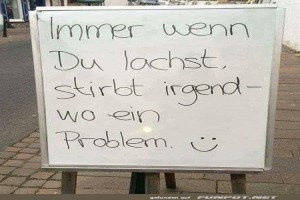 Immer wenn
Du lachst,
stirbt irgend-
wo ein
Problem. :)
gefunden auf FUNPOT.NET